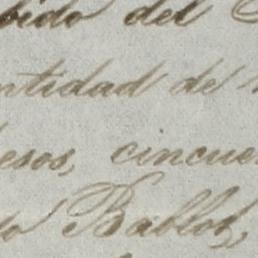 bido del
ntidad de
esos, cincue
do Bablot,